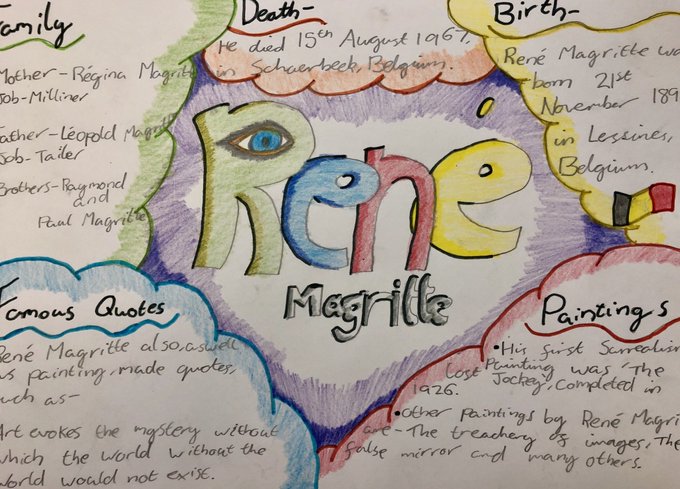 Family
Mother-Régina Magritte
Job-Milliner
Father-Léopold Magritte
Job-Tailer
Brothers-Raymond
and
Paul Magritte
Death-
He died 15th August 1967,
in Schaerbeek, Belgium.
Birth-
René Magritte wa
born 21st
November 189
in Lessines,
Belgium.
René
Magritte
Famous Quotes
René Magritte also, aswell
as painting, made quotes,
such as-
Art evokes the mystery without
which the world without the
world would not exist.
Paintings
•His first Surrealism
Painting was 'The
Lost Jockey', completed in
1926.
•Other paintings by René Magri
are - The treachery of images, The
false mirror and many others.